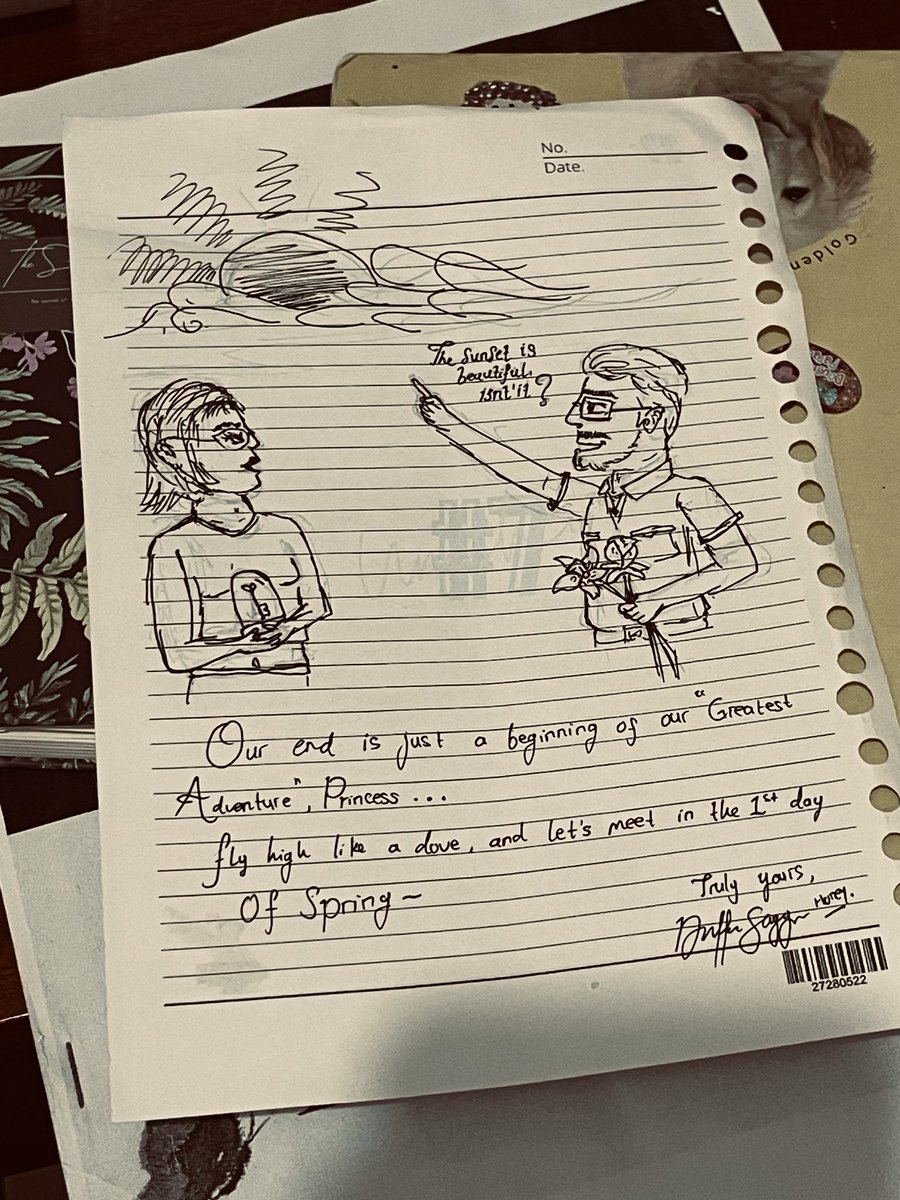 No.
Date.
The S
Golden
The Sunset is
beautiful,
isnt'it?
Our end is just a beginning of our "Greatest
Adventure", Princess ...
fly high like a dove, and let's meet in the 1st day
Of Spring ~
Truly yours,
27280522